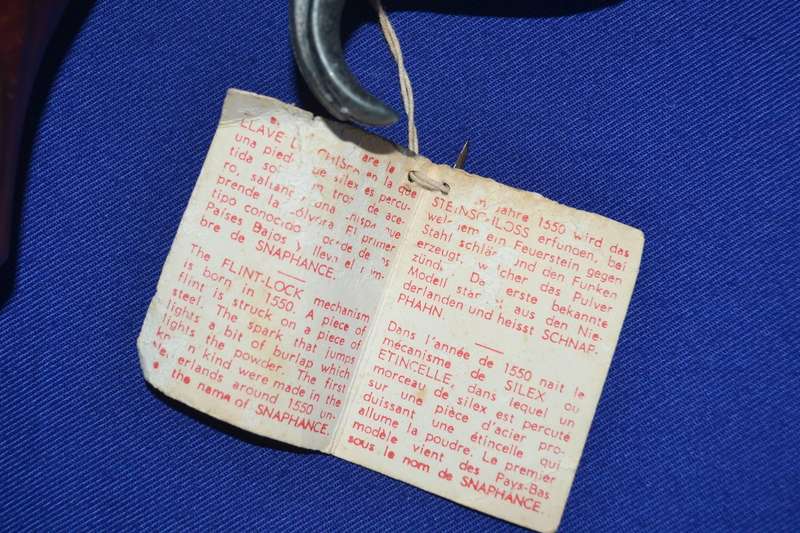 LLAVE
una que silex es percu-
tida de ace-
ro, saltan una
prende la El primer
tipo conocido de
Países Bajos lleva el
bre de SNAPHANCE.
The FLINT-LOCK mechanism
is born in 1550. A piece of
flint is struck on a piece of
steel. The spark that jumps
lights a bit of burlap which
lights the powder. The first
kind were made in the
erlands around 1550 un-
the name of SNAPHANCE.
Jahre 1550 wird das
STEINSCHLOSS erfunden, bei
welchem ein Feuerstein gegen
Stahl und den Funken
erzeugt, welcher das Pulver
erste bekannte
Modell aus den Nie-
derlanden und heisst SCHNAP-
PHAHN.
Dans l'année de 1550 nait le
mécanisme de SILEX ou
ETINCELLE, dans lequel un
morceau de silex est percuté
sur une pièce d'acier pro-
duissant une étincelle qui
allume la poudre. Le premier
modèle vient des Pays-Bas
sous le nom de SNAPHANCE.